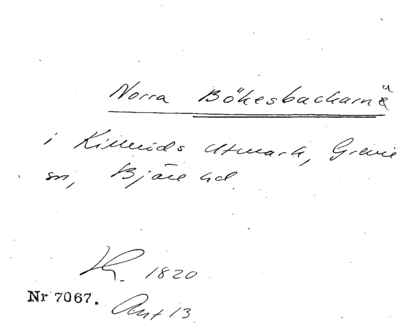 Norra Bökesbackarna
i Killeröds Utmark, Grevie
sn, Bjäre hd.
1820
Nr 7067.
Akt 13